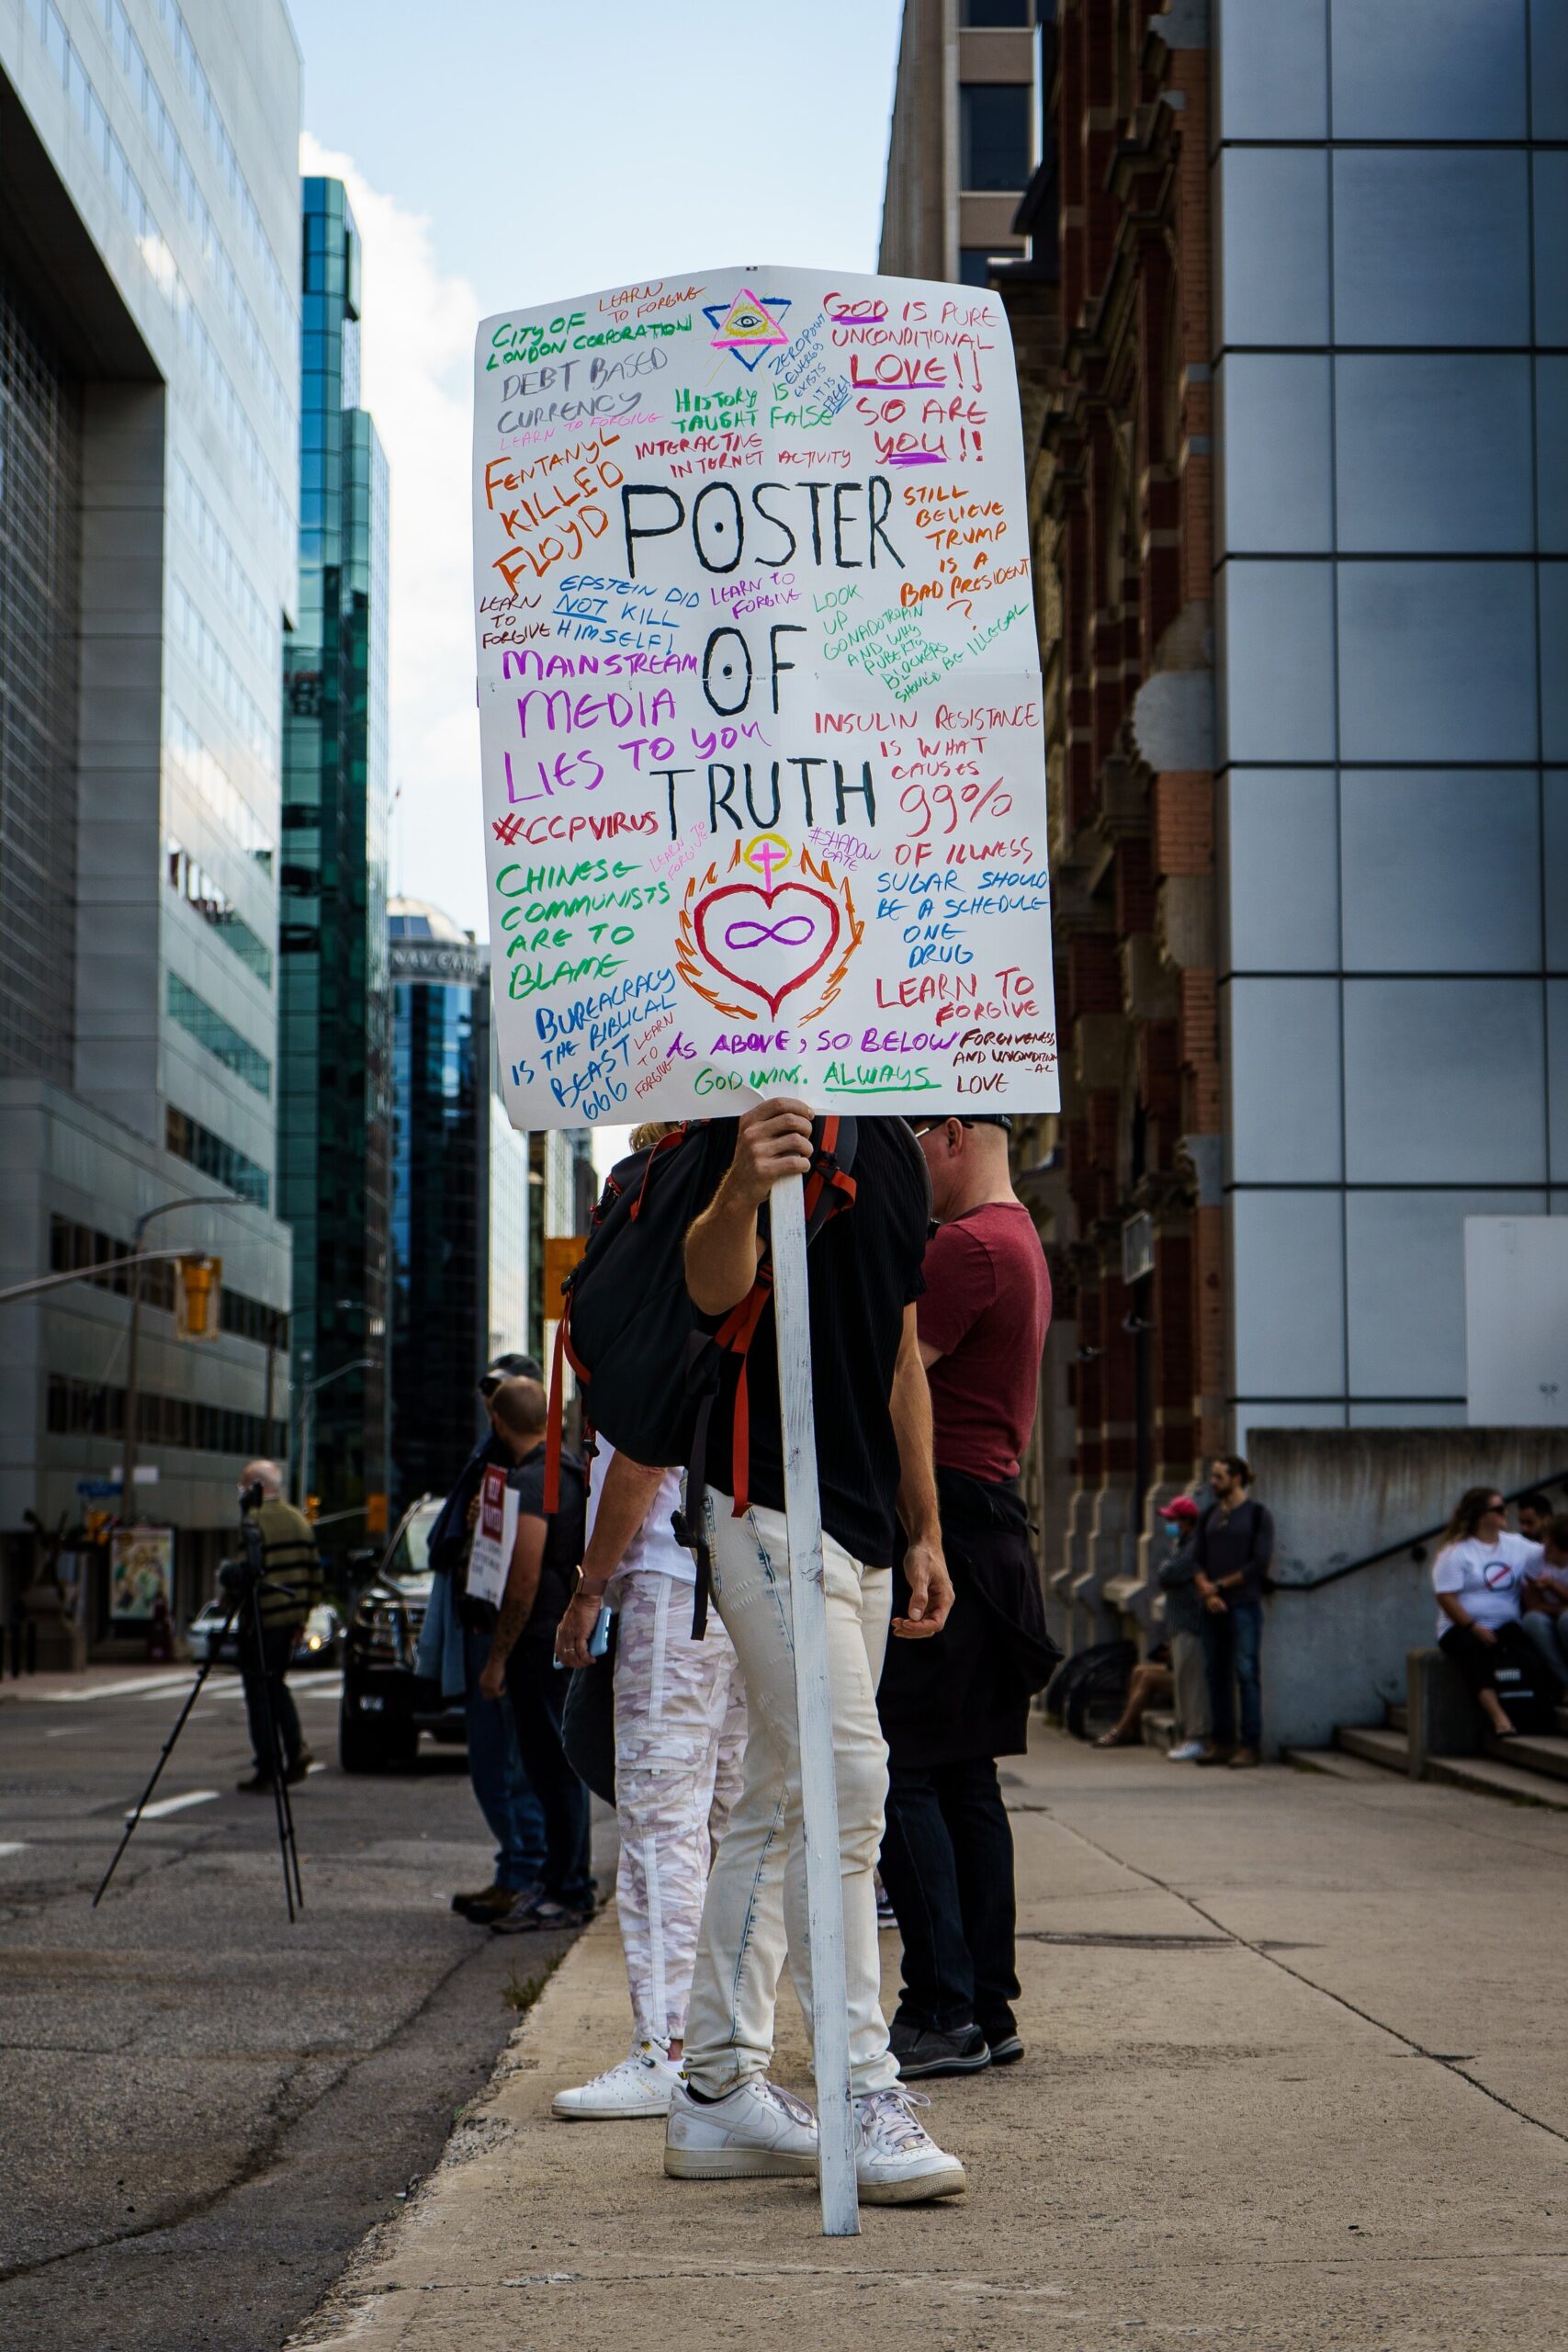 LEARN
TO FORGIVE
CITY OF
LONDON CORPORATION
DEBT BASED
CURRENCY
LEARN TO FORGIVE
ZEROPOINT
ENERGY
EXISTS
IT IS
FREE!
HISTORY IS
TAUGHT FALSE
GOD IS PURE
UNCONDITIONAL
LOVE!!
SO ARE
YOU!!
INTERACTIVE
INTERNET ACTIVITY
FENTANYL
KILLED
FLOYD
POSTER
OF
TRUTH
STILL
BELIEVE
TRUMP
IS A
BAD PRESIDENT
?
LEARN
TO
FORGIVE
EPSTEIN DID
NOT KILL
HIMSELF!
LEARN TO
FORGIVE
LOOK
UP
GONADOTROPIN
AND WHY
PUBERTY
BLOCKERS
SHOULD BE ILLEGAL
MAINSTREAM
MEDIA
LIES TO YOU
INSULIN RESISTANCE
IS WHAT
CAUSES
99%
OF ILLNESS
#CCPVIRUS
LEARN TO
FORGIVE
#SHADOW
GATE
CHINESE
COMMUNISTS
ARE TO
BLAME
SUGAR SHOULD
BE A SCHEDULE
ONE
DRUG
LEARN TO
FORGIVE
BUREACRACY
IS THE BIBLICAL
BEAST
666
LEARN
TO
FORGIVE
AS ABOVE, SO BELOW
GOD WINS. ALWAYS
FORGIVENESS
AND UNCONDITION
-AL
LOVE